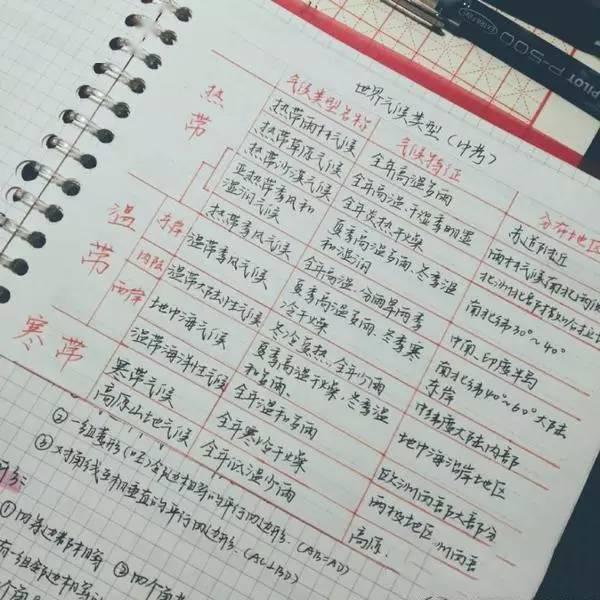 PILOT P-500 EXTRA FINE
世界气候类型（中考）
气候类型名称 气候特征 分布地区
热带
热带雨林气候 全年高温多雨 赤道附近
热带草原气候 全年高温,干湿季明显 雨林气候南北两侧
热带沙漠气候 全年炎热干燥
亚热带季风和湿润气候 夏季高温多雨、冬季温和湿润 南北纬30°～40°
热带季风气候 全年高温,分两旱雨季 中南、印度半岛
温带
东岸 温带季风气候 夏季高温多雨、冬季寒冷干燥 南北纬40°～60°大陆东岸
内陆 温带大陆性气候 冬冷夏热、全年少雨 中纬度大陆内部
西岸 地中海气候 夏季高温干燥,冬季温和多雨. 地中海沿岸地区
温带海洋性气候 全年温和多雨 欧洲西部大部分
寒带
寒带气候 全年寒冷干燥 两极地区
高原山地气候 全年低温少雨 高原.
② 一组菱形
③ 对角线互相垂直的平行四边形. (AC⊥BD)
(AB=AD)
① 四条边都相等 ② 四个角
有一组邻边相等